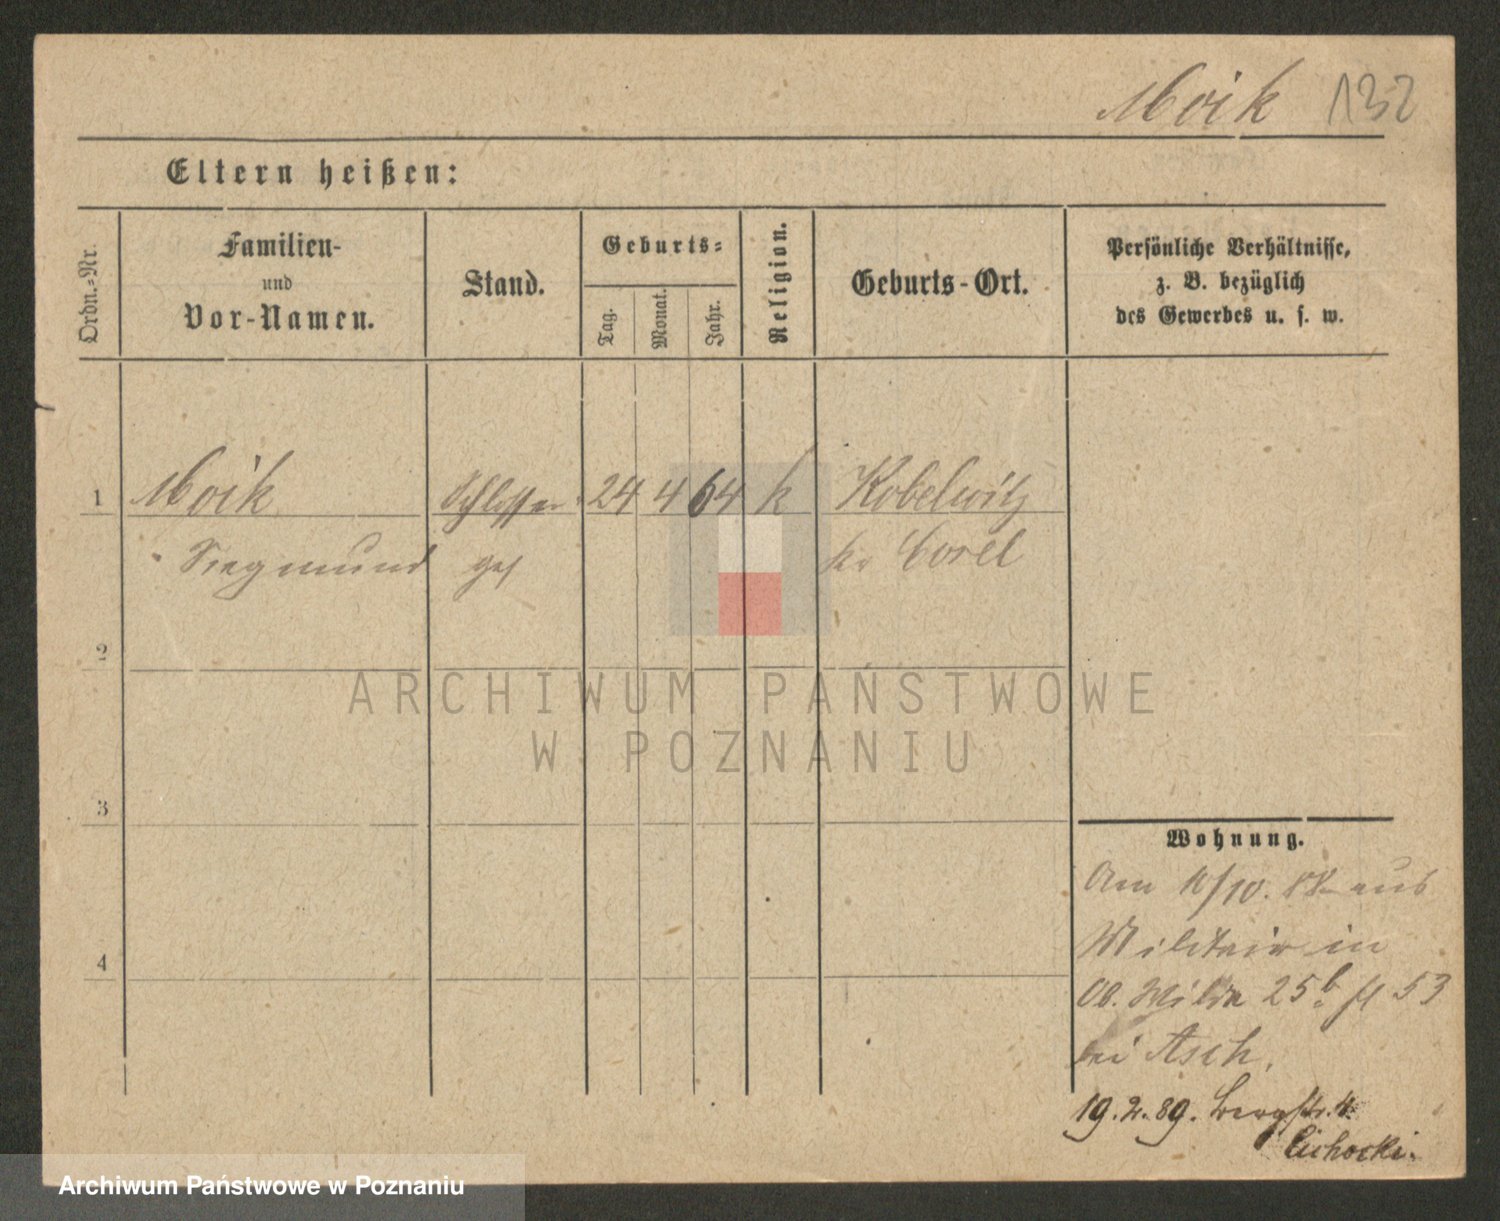 Moik 132
Eltern heißen:
Ordn.-Nr.
Familien-
und
Vor-Namen.
Stand.
Geburts-
Tag.
Monat.
Jahr.
Religion.
Geburts-Ort.
Persönliche Verhältnisse,
z. B. bezüglich
des Gewerbes u. s. w.
1 Moik Schlosser 24 4 64 k Kobelwitz
Siegmund ges Kr Cosel
2
3
4
Wohnung.
Am 10/10. 88 aus
Militair in
Ob. Wilda 25b 53
bei Asch.
19.2.89. Bergstr. 4.
Cichocki.
ARCHIWUM PAŃSTWOWE
W POZNANIU
Archiwum Państwowe w Poznaniu